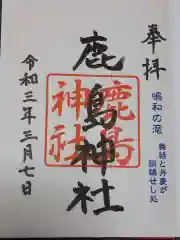 奉拝
鳴和の滝
義経と弁慶が
酒宴せし処
鹿島神社
鹿島
神社
令和三年三月七日